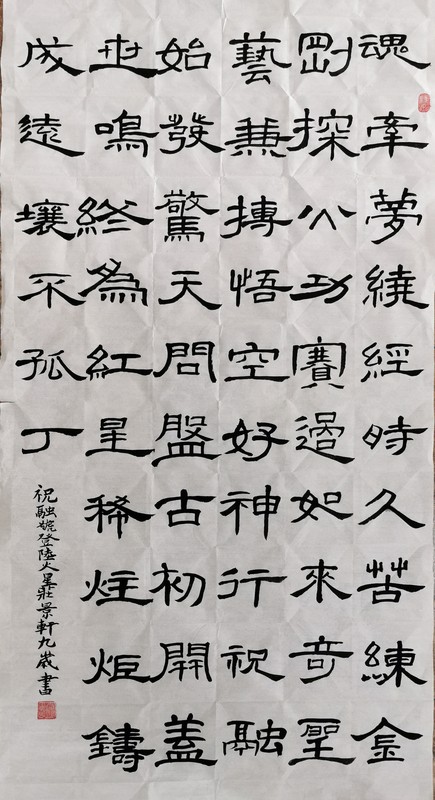 魂牽夢繞經時久苦練金
剛探公功賽過如來奇聖
藝兼搏悟空好神行祝融
始發驚天問盤古初開蓋
世鳴終為紅星稀炷炬鑄
成遠壤不孤丁
祝融號登陸火星莊景軒九歲書